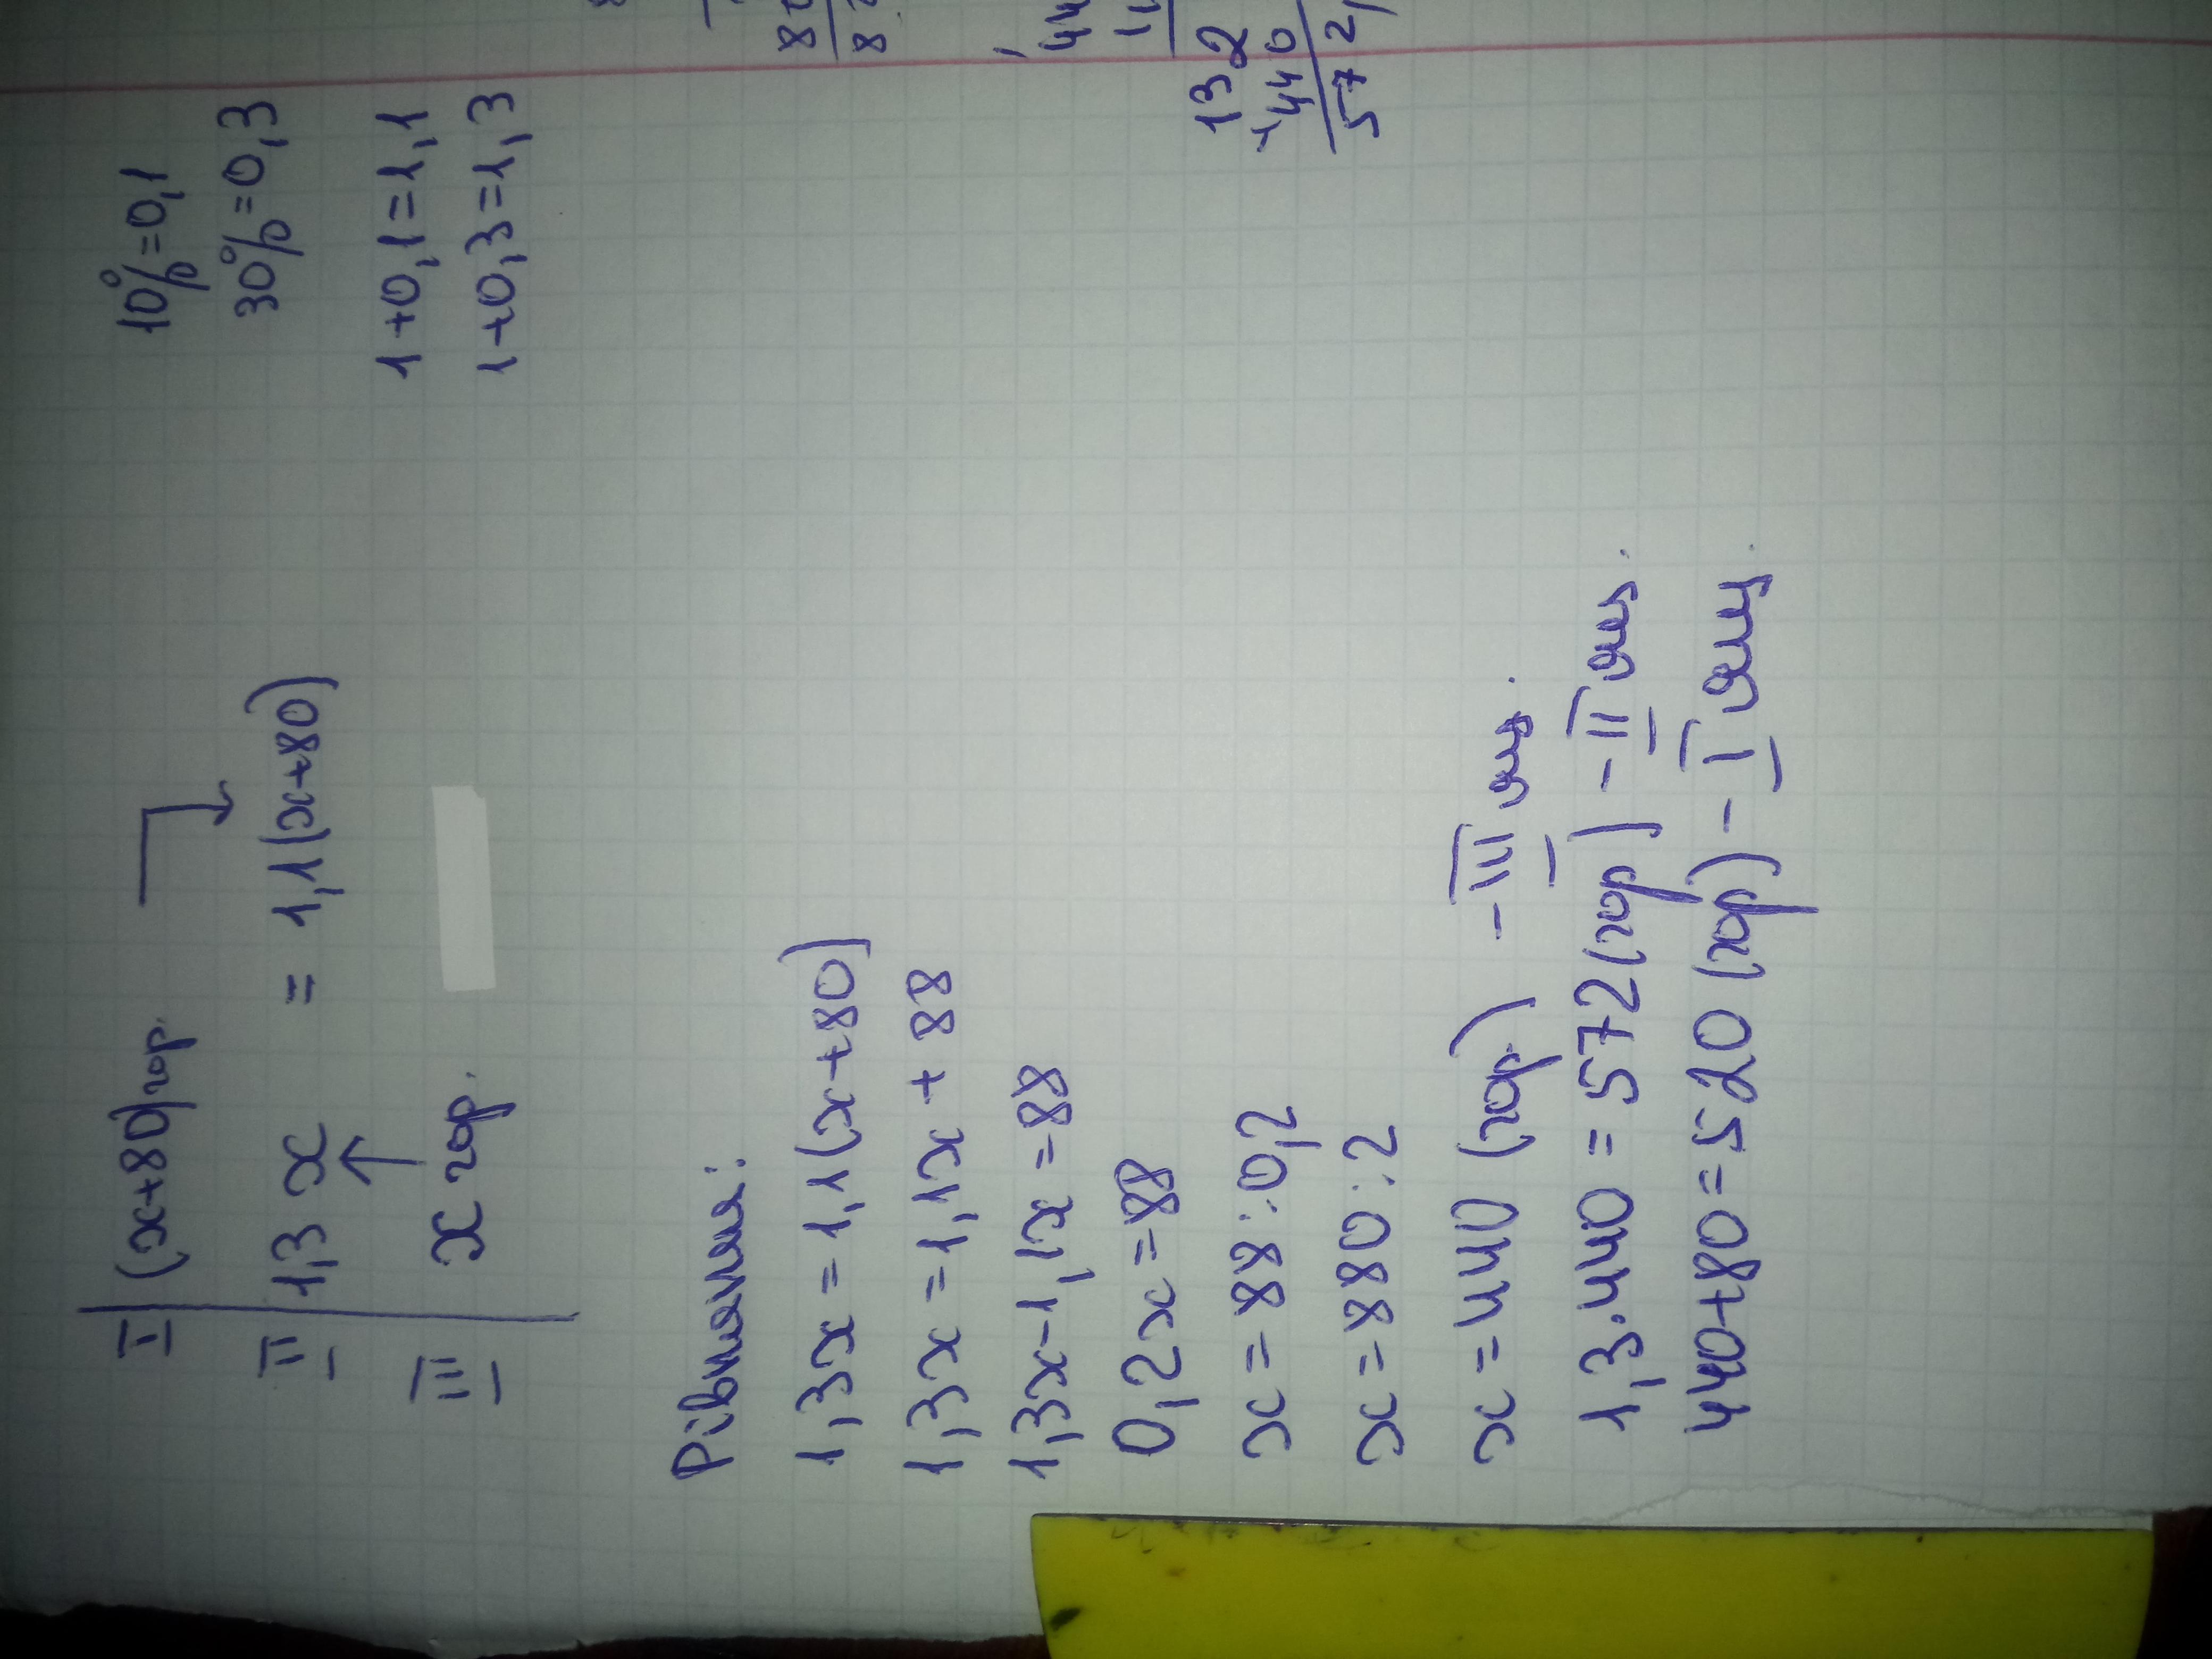 I (x+80) гор.
II 1,3x = 1,1(x+80)
III x гор.
10%=0,1
30%=0,3
1+0,1=1,1
1+0,3=1,3
Рівняння:
1,3x = 1,1(x+80)
1,3x = 1,1x + 88
1,3x-1,1x = 88
0,2x = 88
x = 88:0,2
x = 880:2
x = 440 (гор.) - III
1,3·440 = 572 (гор) - II
440+80 = 520 (гор) - I
132
+440
572